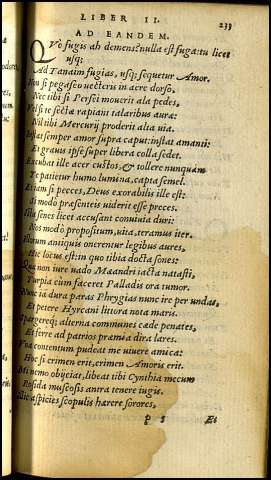 LIBER II.
239
AD EANDEM.
QVo fugis ah demens? nulla est fuga: tu licet
usq;
Ad Tanaim fugias, usq; sequetur Amor.
Non si pegaseo uecteris in aere dorso,
Nec tibi si Persei mouerit ala pedes,
Vel si te sectæ rapiant talaribus auræ:
Nil tibi Mercurij proderit alta uia.
Instat semper amor supra caput: instat amanti:
Et grauis ipse super libera colla sedet.
Excubat ille acer custos, & tollere nunquam
Te patietur humo lumina, capta semel.
Etiam si pecces, Deus exorabilis ille est:
Si modo præsenteis uiderit esse preces.
Illa senes licet accusant conuiuia duri:
Nos modò propositum, uita, teramus iter.
Illorum antiquis onerentur legibus aures,
Hic locus est: in quo tibia docta sones:
Qua non iure uado Mæandri iacta natasti,
Turpia cum faceret Palladis ora tumor.
Nunc iã dura paras Phrygias nunc ire per undas,
Et petere Hyrcani littora nota maris.
Spargereq; alterna communes cæde penates,
Et ferre ad patrios præmia dira lares.
Vna contentum pudeat me uiuere amica:
Hoc si crimen erit, crimen Amoris erit.
Mi nemo obijciat, libeat tibi Cynthia mecum
Rosida muscosis antra tenere iugis.
Illic aspicies scopulis hærere sorores,
Et